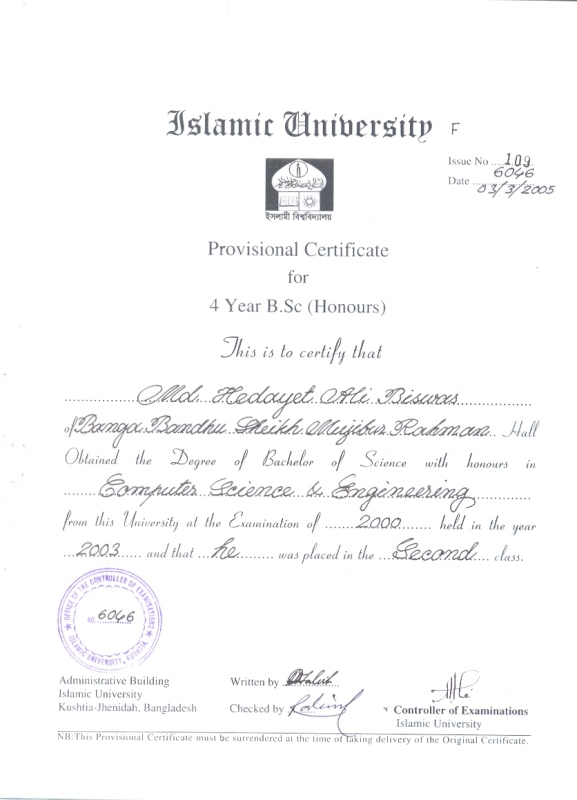 Islamic University F
Issue No ....109.
6046
Date ...03/3/2005
ইসলামী বিশ্ববিদ্যালয়
Provisional Certificate
for
4 Year B.Sc (Honours)
This is to certify that
Md. Hedayet Ali Biswas
of Banga Bandhu Sheikh Mujibur Rahman Hall
Obtained the Degree of Bachelor of Science with honours in
Computer Science & Engineering
from this University at the Examination of 2000 held in the year
2003 and that he was placed in the Second class.
OFFICE OF THE CONTROLLER OF EXAMINATIONS
NO. 6046
ISLAMIC UNIVERSITY, KUSHTIA.
Administrative Building
Islamic University
Kushtia-Jhenidah, Bangladesh
Written by
Checked by
Controller of Examinations
Islamic University
NB:This Provisional Certificate must be surrendered at the time of taking delivery of the Original Certificate.